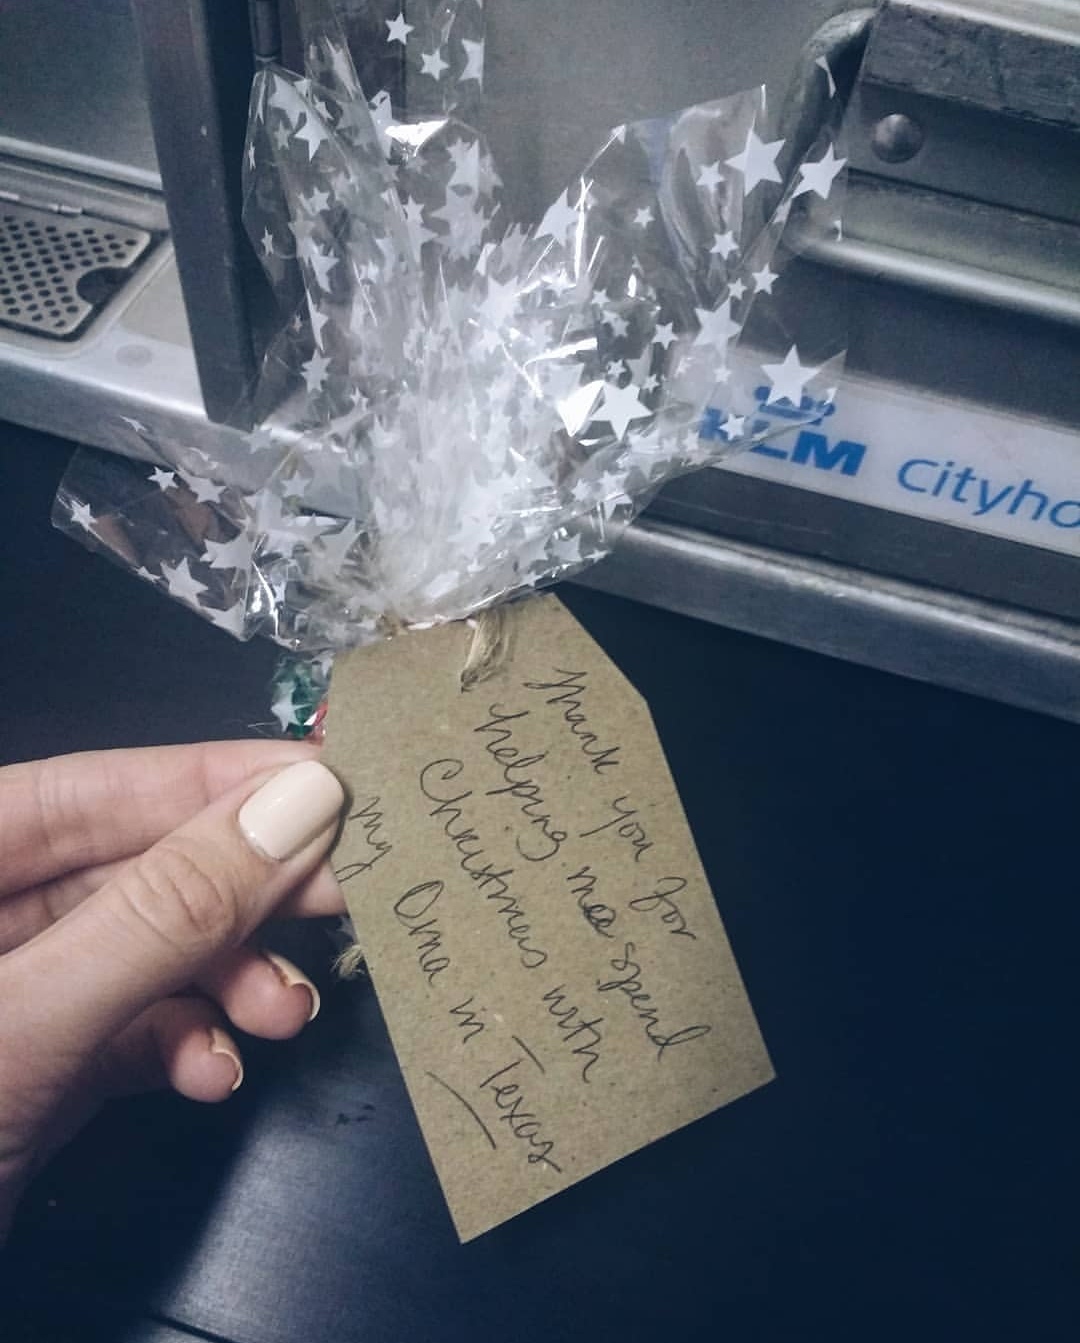 KLM Cityho
Thank you for
helping me spend
Christmas with
my Oma in Texas